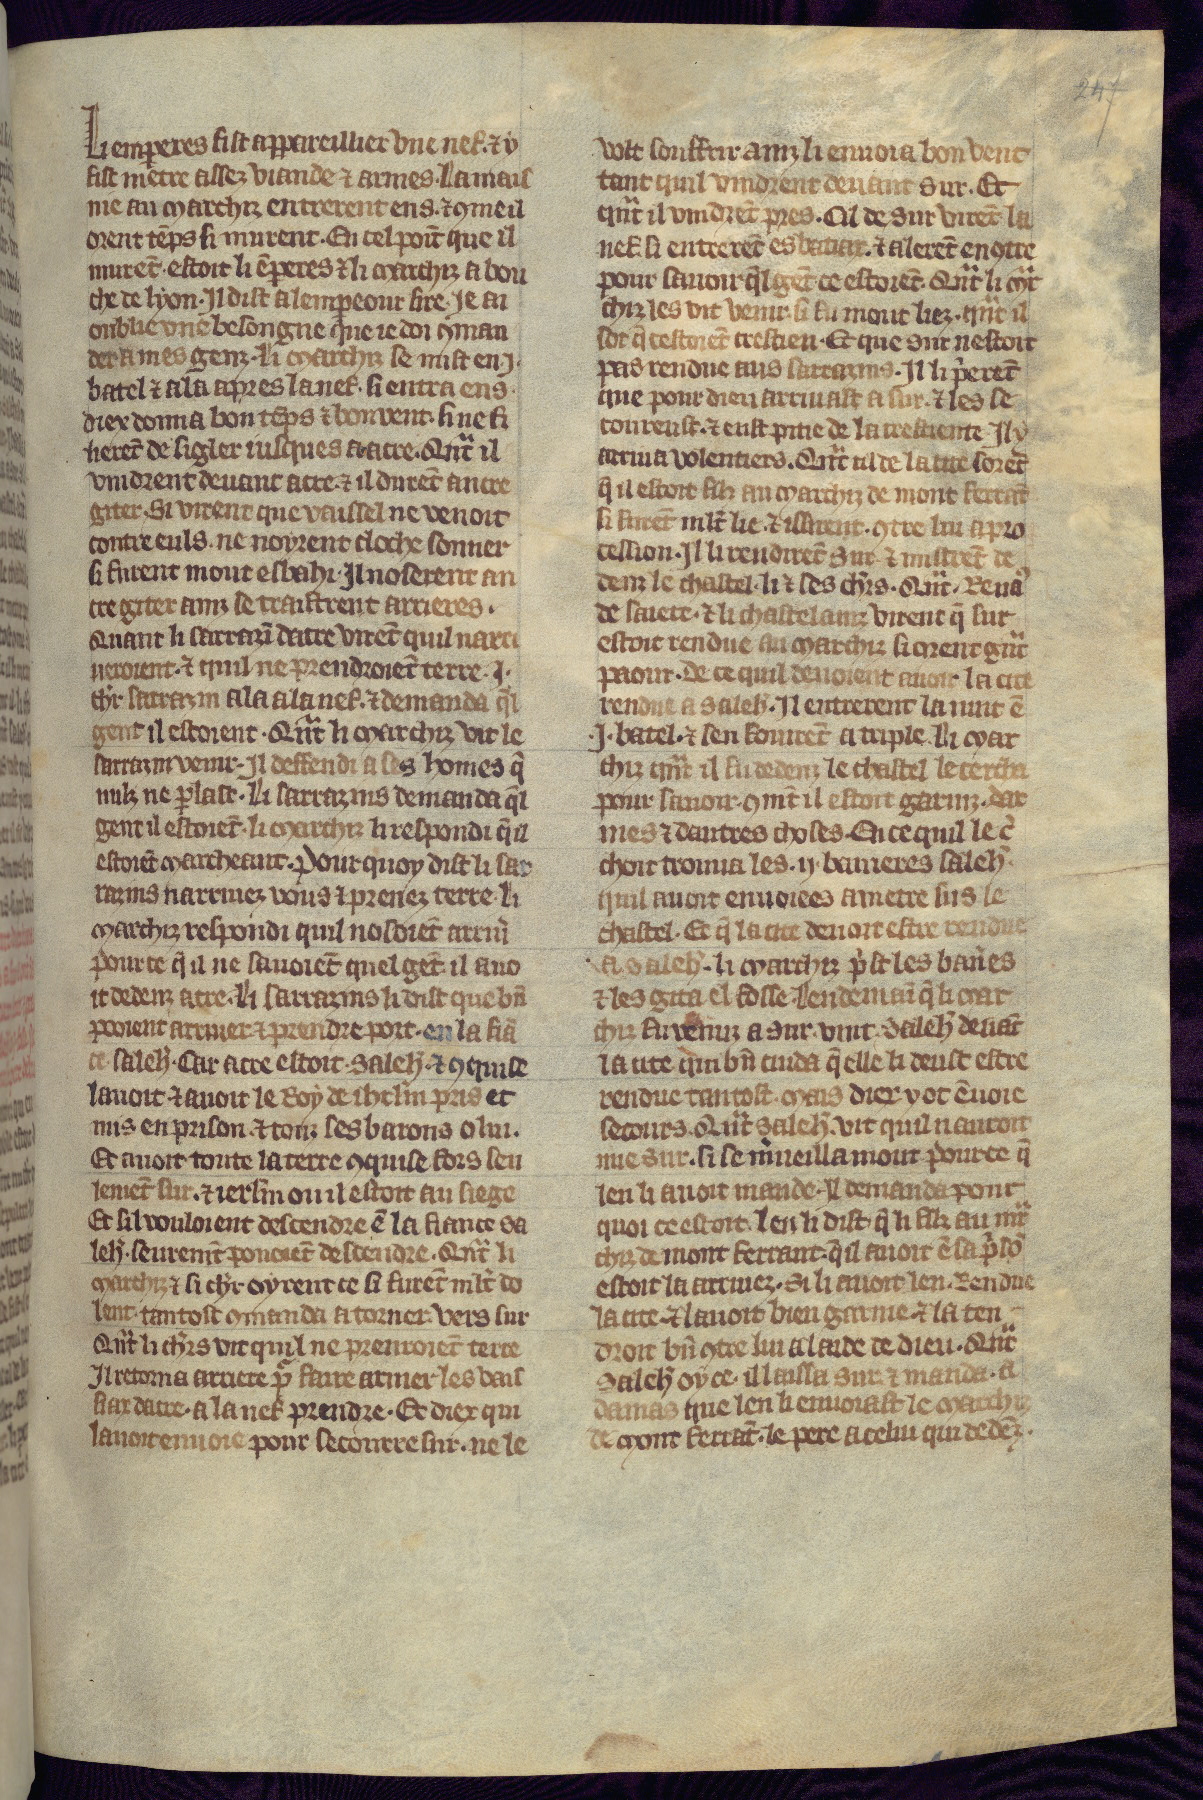 247
Li emperes fist appareillier vne nef. ⁊ y
fist metre assez viande ⁊ armes. La mais
nie au marchiz entrerent ens. ⁊ ꝯme il
orent tẽps si murent. En cel poĩt que il
murẽt. estoit li ẽperes ⁊ li marchiz a bou
che de lyon. Il dist a lempeour sire. Je ai
oublie vne besongne que ie doi ꝯman
der a mes genz. Li marchiz se mist en .j.
batel ⁊ ala apres la nef. si entra ens.
diex donna bon tẽps ⁊ bon vent. si ne fi
nerẽt de sigler iusques a acre. Qũt il
vindrent deuant acre. ⁊ il durẽt ancre
giter. Si virent que vaissel ne venoit
contre euls. ne noyrent cloche sonner
si furent mout esbahi. Il noserent an
cre giter ainz se traistrent arrieres.
Quant li sarrazĩ dacre virẽt quil narri
ueroient. ⁊ quil ne prendroiẽt terre. j.
chr̃ sarrazin ala a la nef. ⁊ demanda q̃l
gent il estoient. Qũt li marchiz vit le
sarrazin venir. Il deffendi a ses homes q̃
nulz ne ꝑlast. Li sarrazins demanda q̃l
gent il estoiẽt. li marchiz li respondi q̃ il
estoiẽt marcheant. Pour quoy dist li sar
razins narriuez vous ⁊ prenez terre. Li
marchiz respondi quil nosoiẽt arriũ
pour ce q̃ il ne sauoiẽt quel gẽt il auo
it dedenz acre. Li sarrazins li dist que bñ
pooient arriuer ⁊ prendre port. en la fiã
ce saleh̃. Car acre estoit saleh̃. ⁊ ꝯquise
lauoit ⁊ auoit le Roy de ihrl̃m pris et
mis en prison. ⁊ touz ses barons o lui.
Et auoit toute la terre ꝯquise fors seu
lemẽt sur. ⁊ ierl̃m ou il estoit au siege
Et sil vouloient descendre ẽ la fiance sa
leh̃. seuremt̃ pouoiẽt descendre. Qũt li
marchiz ⁊ si chr̃ oyrent ce si furẽt ml̃t do
lent. tantost ꝯmanda a torner vers sur
Qũt li chr̃s vit quil ne prenroiẽt terre
Il retorna arriere pᵒ faire armer les vais
siax dacre. a la nef prendre. Et diex qui
lauoit enuoie pour secourre sur. ne le
volt souffrir. ainz li enuoia bon vent
tant quil vindrent deuant sur. Et
qũt il vindrẽt pres. Cil de sur virẽt la
nef. si entrerẽt es batiax. ⁊ alerẽt encꝯtre
pour sauoir q̃l gẽt ce estoiẽt. Qũt li m̃r
chiz les vit venir. si fu mout liez. qũt il
sot q̃ cestoiẽt crestien. Et que sur nestoit
pas rendue aus sarrazins. Il li p̃erẽt
que pour dieu arriuast a sur. ⁊ les se
coreust. ⁊ eust pitie de la crestiente. Il y
arriua volentiers. Qũt cil de la cite sorẽt
q̃ il estoit filz au marchiz de mont ferrãt
si furẽt ml̃t lie. ⁊ issirent. ꝯtre lui a pro
cession. Il li rendirẽt sur. ⁊ mistrẽt de
denz le chastel. li ⁊ ses chr̃s. Qũt. Renaᵒ
de saiete. ⁊ li chastelainz virent q̃ sur
estoit rendue au marchiz si orent gñt
paour. De ce quil deuoient auoir la cite
rendue a saleh̃. Il entrerent la nuit ẽ
.J. batel. ⁊ sen fouirẽt a triple. Li mar
chiz qũt il fu dedenz le chastel le cercha
pour sauoir. ꝯmt̃ il estoit garniz. dar
mes ⁊ dautres choses. En ce quil le c̃
choit trouua les .ij. banieres saleh̃.
quil auoit enuoiees a metre sus le
chastel. Et q̃ la cite deuoit estre rendue
a saleh̃. li marchiz p̃st les bañes
⁊ les gita el fosse. Lendemaĩ q̃ li mar
chiz fu venuz a sur. vint. Saleh̃ deuãt
la cite qui bñ cuida q̃ elle li deust estre
rendue tantost. mais diex y ot ẽuoie
secours. Qũt saleh̃. vit quil nauroit
mie sur. si se m̃ueilla mout pour ce q̃
len li auoit mande. Il demanda pour
quoi ce estoit. len li dist. q̃ li filz au mr̃
chiz de mont ferrant. q̃ il auoit ẽ sa p̃sõ
estoit la arriuez. Si li auoit len. Rendue
la cite. ⁊ lauoit bien garnie. ⁊ la ten
droit bñ ꝯtre lui a laide de dieu. Qũt
saleh̃ oy ce. il laissa sur. ⁊ manda. a
damas que len li enuoiast le marchiz
de mont ferrãt. le pere a celui qui dedẽz.